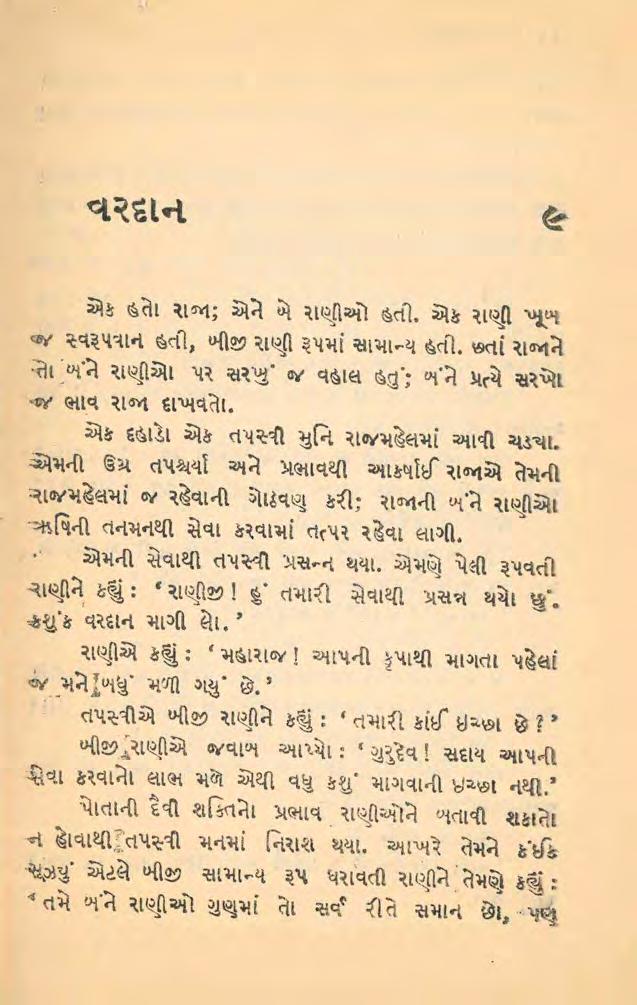 વરદાન
૯
એક હતો રાજા; એને બે રાણીઓ હતી. એક રાણી ખૂબ
જ સ્વરૂપવાન હતી, બીજી રાણી રૂપમાં સામાન્ય હતી. છતાં રાજાને
તો બંને રાણીઓ પર સરખું જ વહાલ હતું; બંને પ્રત્યે સરખો
જ ભાવ રાજા દાખવતો.
એક દહાડો એક તપસ્વી મુનિ રાજમહેલમાં આવી ચડ્યા.
એમની ઉગ્ર તપશ્ચર્યા અને પ્રભાવથી આકર્ષાઈ રાજાએ તેમની
રાજમહેલમાં જ રહેવાની ગોઠવણ કરી; રાજાની બંને રાણીઓ
ઋષિની તનમનથી સેવા કરવામાં તત્પર રહેવા લાગી.
એમની સેવાથી તપસ્વી પ્રસન્ન થયા. એમણે પેલી રૂપવતી
રાણીને કહ્યું : ‘રાણીજી ! હું તમારી સેવાથી પ્રસન્ન થયો છું.
કશુંક વરદાન માગી લો.’
રાણીએ કહ્યું : ‘મહારાજ ! આપની કૃપાથી માગતા પહેલાં
જ મને બધું મળી ગયું છે.’
તપસ્વીએ બીજી રાણીને કહ્યું : ‘તમારી કાંઈ ઇચ્છા છે ?’
બીજી રાણીએ જવાબ આપ્યો : ‘ગુરુદેવ ! સદાય આપની
સેવા કરવાનો લાભ મળે એથી વધુ કશું માગવાની ઇચ્છા નથી.’
પોતાની દૈવી શક્તિનો પ્રભાવ રાણીઓને બતાવી શકાતો
ન હોવાથી તપસ્વી મનમાં નિરાશ થયા. આખરે તેમને કંઈક
સૂઝયું એટલે બીજી સામાન્ય રૂપ ધરાવતી રાણીને તેમણે કહ્યું :
‘તમે બંને રાણીઓ ગુણમાં તો સર્વ રીતે સમાન છો, પણ